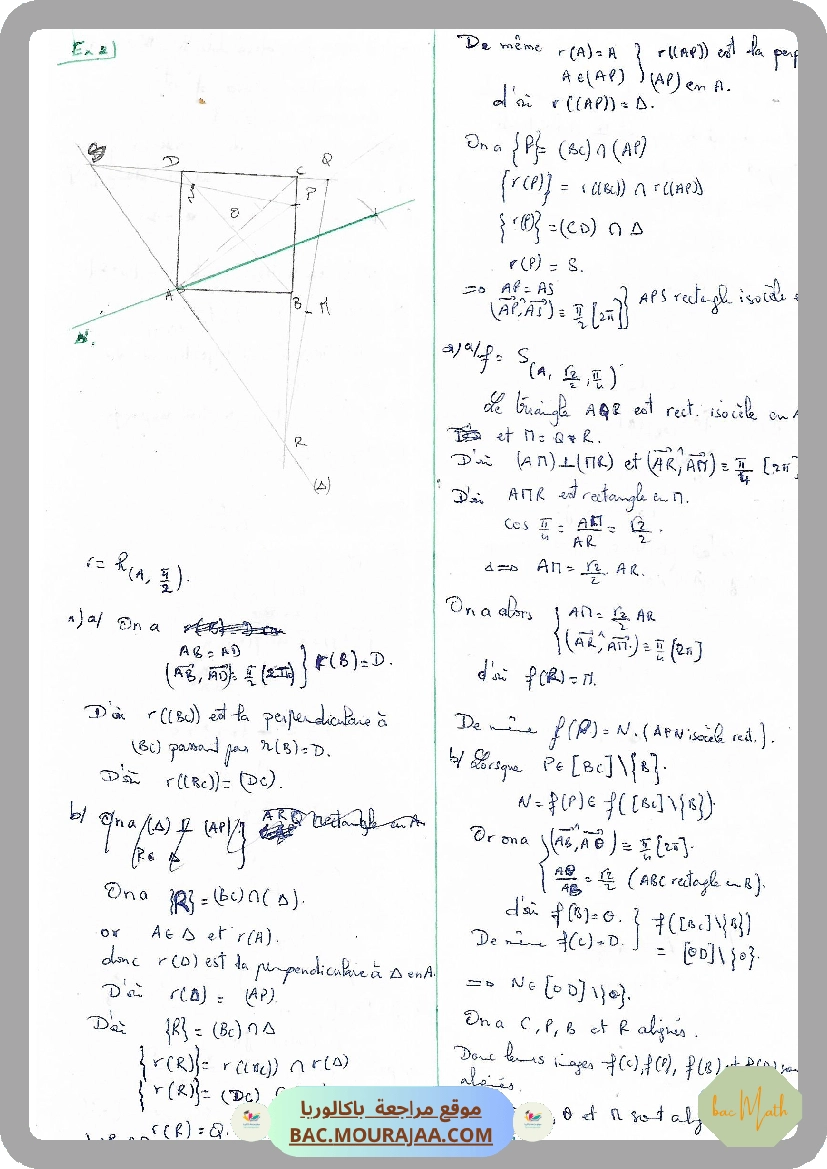 Ex 2)
S
D
C
Q
P
O
A
B
M
R
(Δ)
r = R(A, π/2).
1) a/ On a
AB = AD
(AB, AD) ≡ π/2 [2π] } r(B) = D.
D'où r((BC)) est la perpendiculaire à
(BC) passant par r(B) = D.
D'où r((BC)) = (DC).
b/ On a (Δ) ⊥ (AP)
R ∈ Δ
On a {R} = (BC) ∩ (Δ).
or A ∈ Δ et r(A).
donc r(Δ) est la perpendiculaire à Δ en A.
D'où r(Δ) = (AP).
D'où {R} = (BC) ∩ Δ
{r(R)} = r((BC)) ∩ r(Δ)
{r(R)} = (DC) ∩
r(R) = Q.
De même r(A) = A } r((AP)) est la perp
A ∈ (AP) } (AP) en A.
d'où r((AP)) = Δ.
On a {P} = (BC) ∩ (AP)
{r(P)} = r((BC)) ∩ r((AP))
{r(P)} = (CD) ∩ Δ
r(P) = S.
=> AP = AS
(AP, AS) ≡ π/2 [2π] } APS rectangle isocèle
2) a/ f = S(A, √2/2, π/4)
Le triangle AQR est rect. isocèle en A
et M = Q * R.
D'où (AM) ⊥ (MR) et (AR, AM) ≡ π/4 [2π]
D'où AMR est rectangle en M.
cos π/4 = AM/AR = √2/2.
<=> AM = √2/2 AR.
On a alors { AM = √2/2 AR
(AR, AM) ≡ π/4 [2π]
d'où f(R) = M.
De même f(P) = N. (APN isocèle rect.).
b/ Lorsque P ∈ [BC] \ {B}.
N = f(P) ∈ f([BC] \ {B}).
Or on a { (AB, AO) ≡ π/4 [2π].
AO/AB = √2/2 (ABC rectangle en B).
d'où f(B) = O. } f([BC] \ {B})
De même f(C) = D. } = [OD] \ {O}.
=> N ∈ [OD] \ {O}.
On a C, P, B et R alignés.
Donc leurs images f(C), f(P), f(B) et f(R) son
alignés.
, O et M sont alig
موقع مراجعة باكالوريا
BAC.MOURAJAA.COM
bac Math